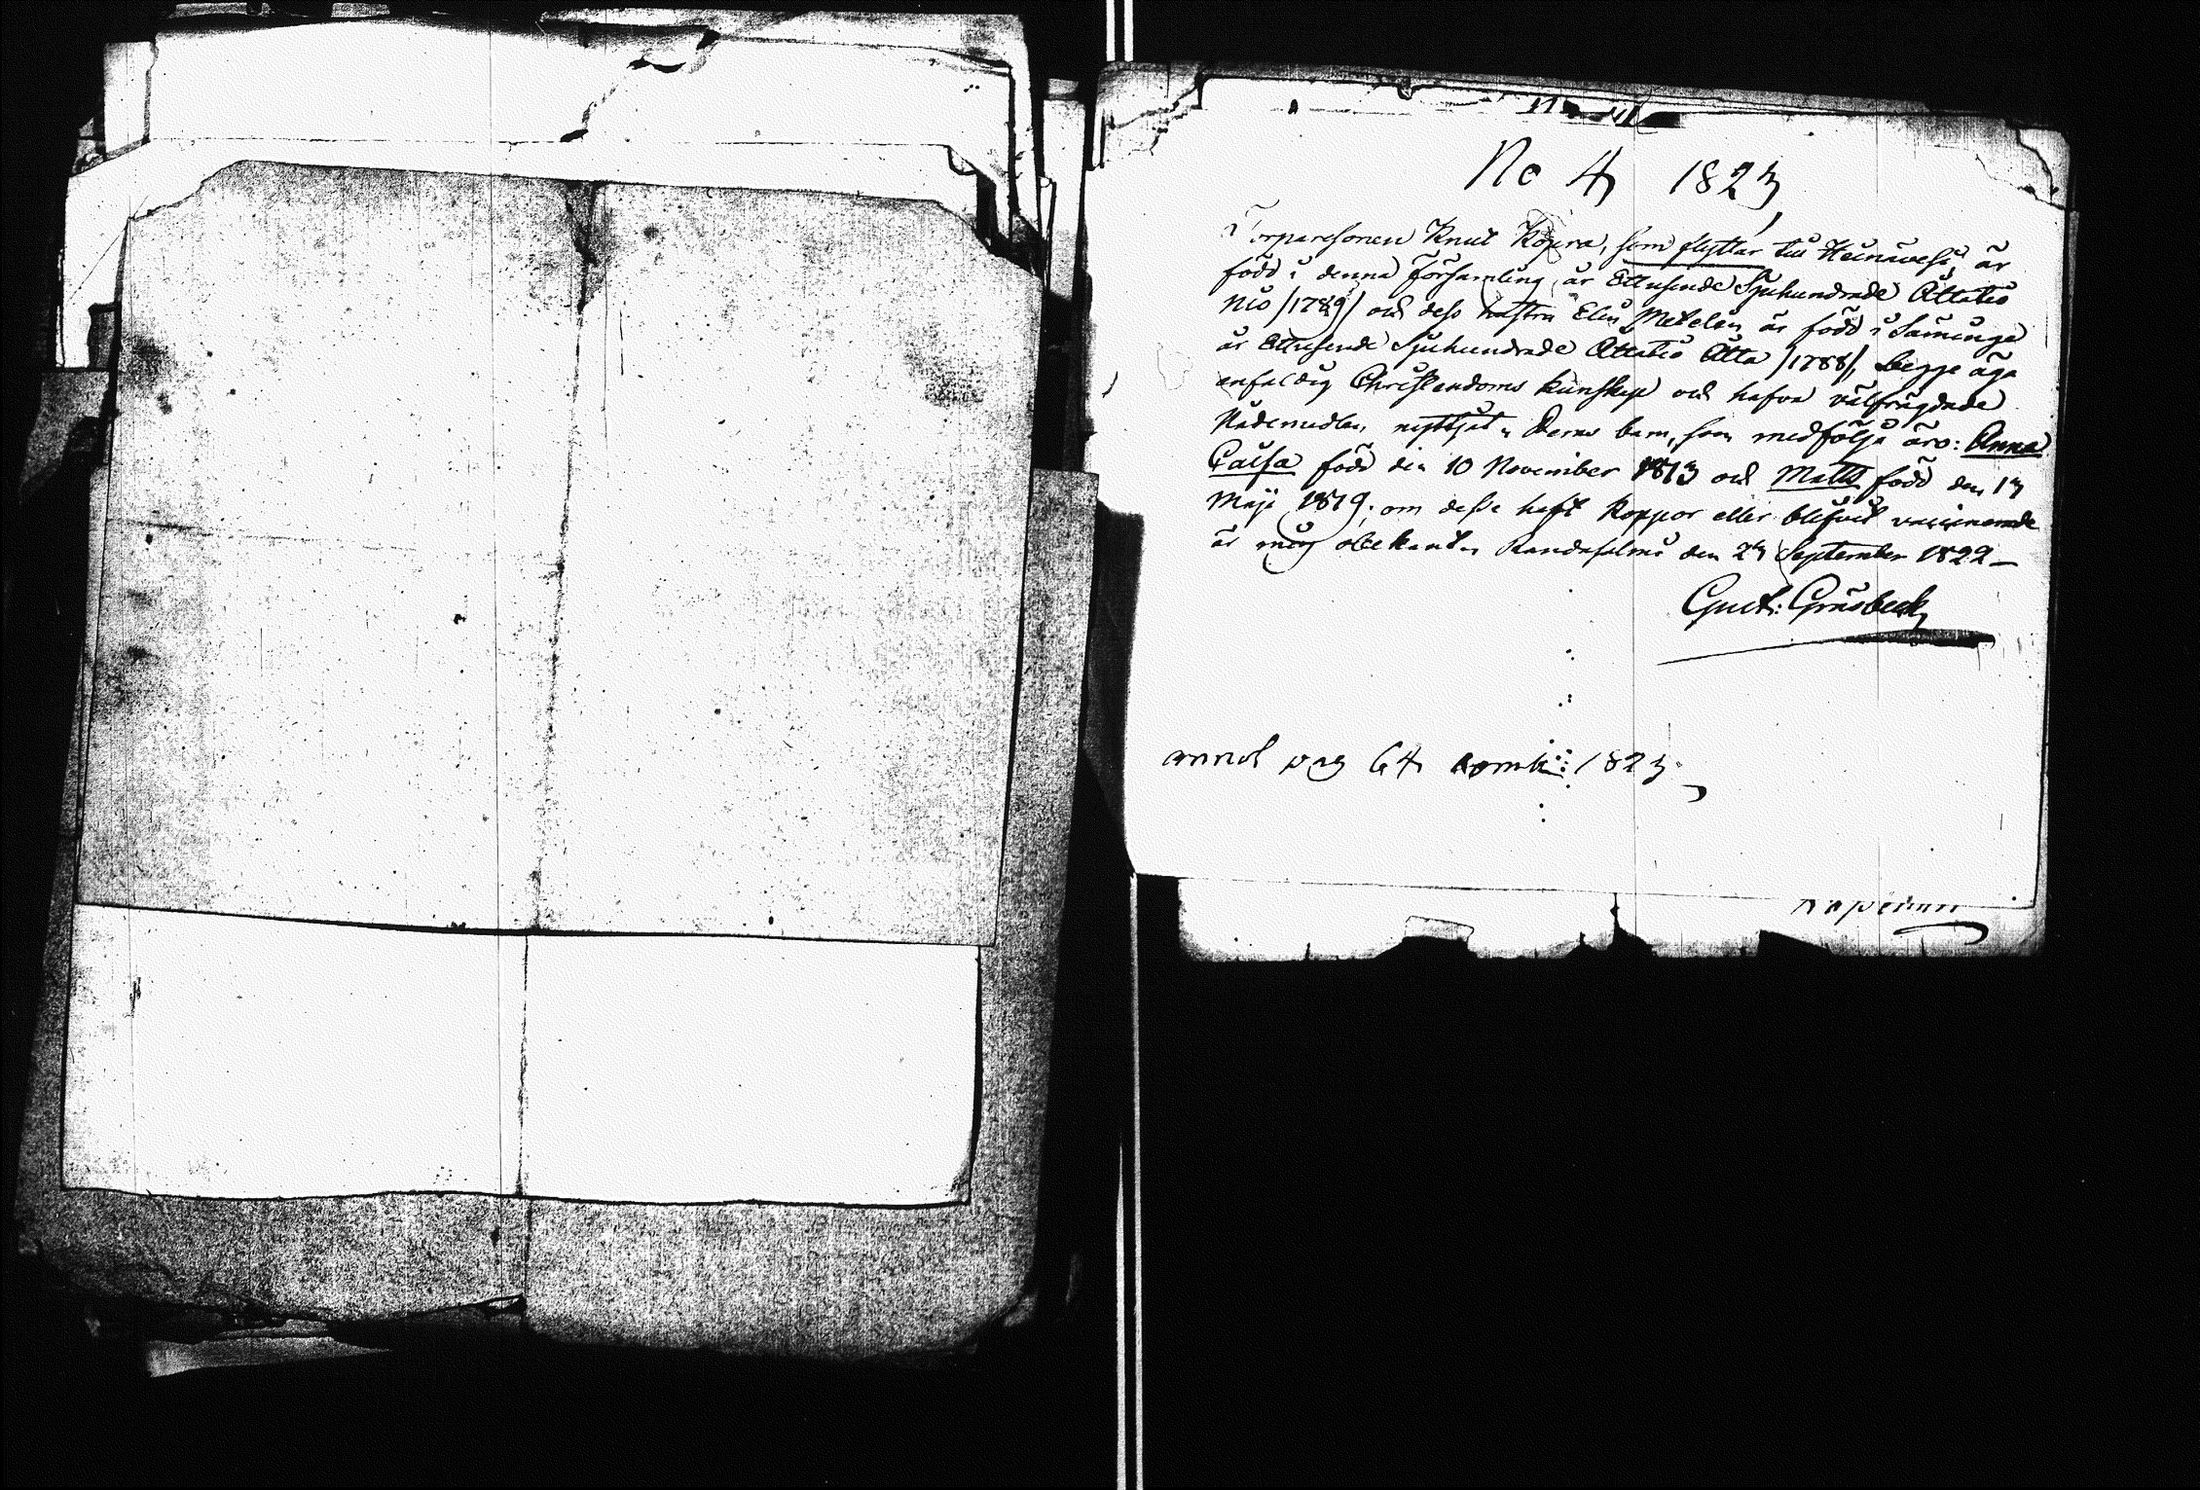 No 4 1823
Torparesonen Knut Kopra, som flyttar till Heinävesi, är
född i denna Församling år Ettusende Sjuhundrade Åttatio
Nio /1789/ och dess hustru Elin Metelän är född i Säminge
år Ettusende Sjuhundrade Åttatio Åtta /1788/, begge äga
enfaldig Christendoms kunskap och hafva välfrägdade
Nådemedlen nyttjat. Deras barn, som medfölja äro: Anna
Caisa född den 10 November 1813 och Matts född den 13
Maji 1819; om desse haft Koppor eller blifvit vaccinerade
är mig obekant. Randasalmi den 23 September 1822 —
Gust: Gräsbeck
annot pag 64 comm: 1823